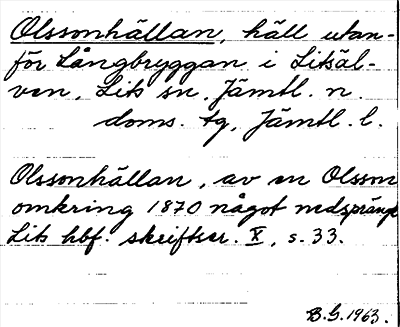 Olssonhällan, häll utan-
för Långbryggan i Litsäl-
ven, Lits sn, Jämtl. n.
doms. tg, Jämtl. l.
Olssonhällan, av en Olsson
omkring 1870 något nedsprängt
Lits hbf. skriftser. X, s. 33.
B.G. 1963.